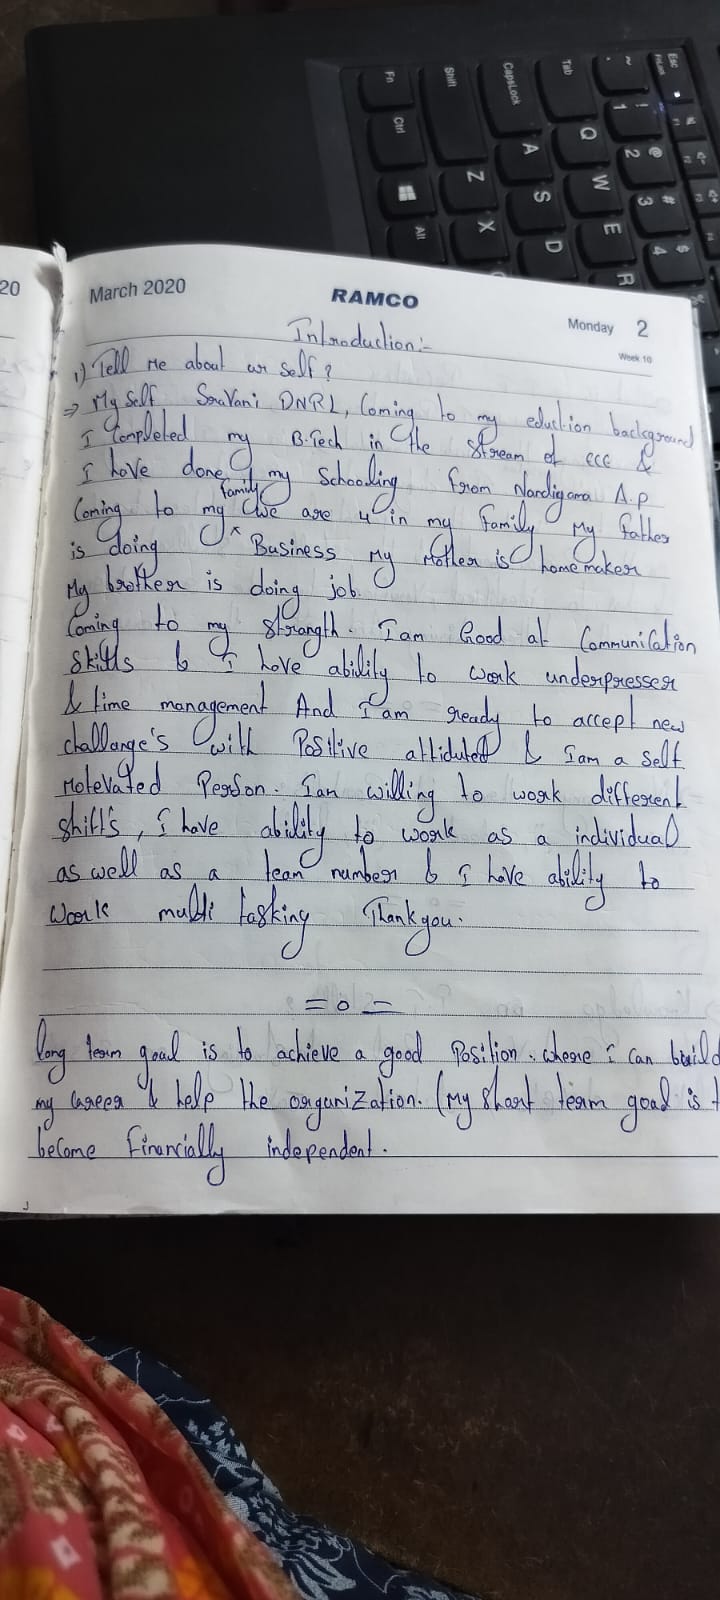 Esc
FnLock
F1
F2
F3
F4
~
`
!
1
@
2
#
3
$
4
Tab
Q
W
E
R
CapsLock
A
S
D
Shift
Z
X
Fn
Ctrl
Alt
20
March 2020
RAMCO
Monday 2
Week 10
Introduction:-
1) Tell me about ur self?
⇒ My self Sravani DNRL, Coming to my eduction background
I Completed my B.Tech in the stream of ECE &
I have done my Schooling from Nandigama A.p
Coming to my family We are 4 in my family My father
is doing Business My Mother is homemaker
My brother is doing job.
Coming to my strangth. I am Good at Communication
Skills & I have ability to work underpresser
& time management And I am ready to accept new
challange's with Positive attiduted & I am a self
Motevated Person. I am willing to work different
shift's, I have ability to work as a individual
as well as a team number & I have ability to
work multi tasking Thank you.
= o =
long team goal is to achieve a good Position. where I can build
my career & help the organization. (My short team goal is t
become financially independent.